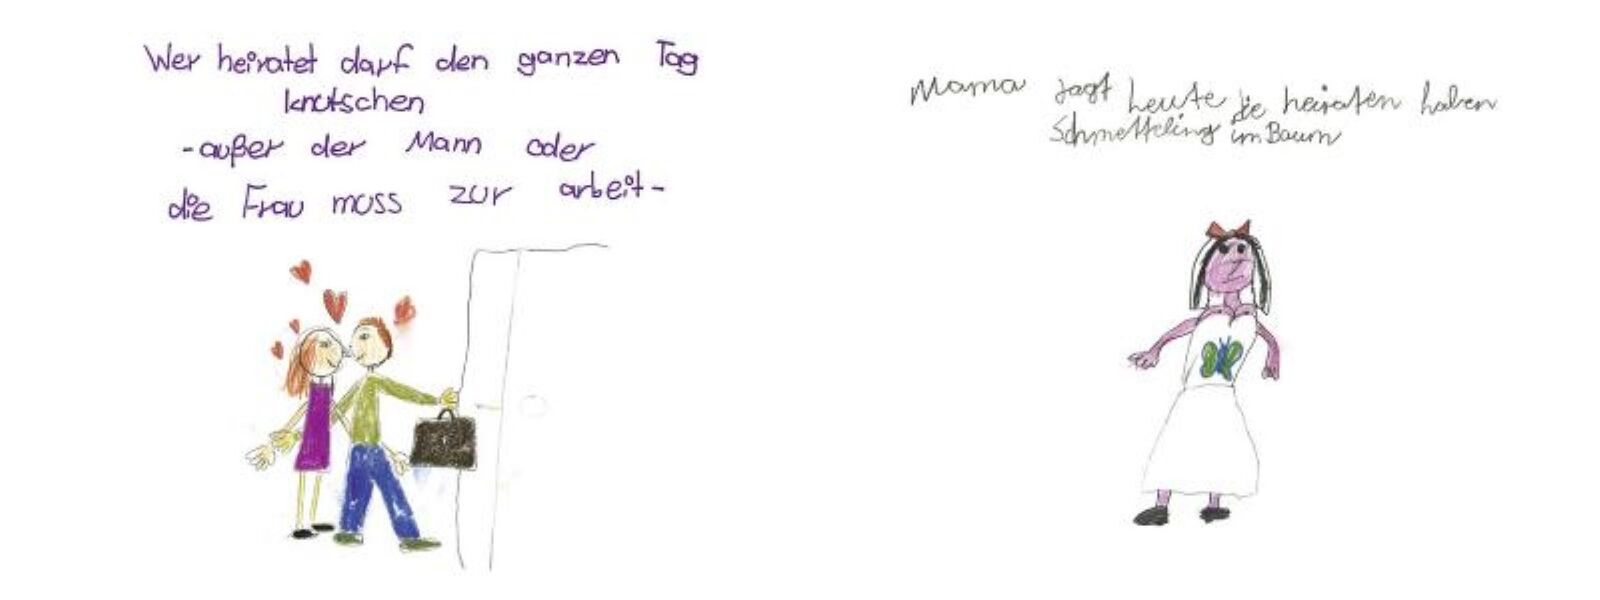 Wer heiratet darf den ganzen Tag
knutschen
-außer der Mann oder
die Frau muss zur arbeit-
Mama sagt Leute die heiraten haben
Schmetteling im Baum